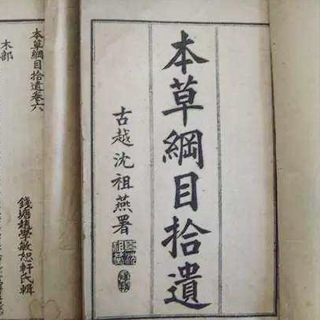 本草綱目拾遺
古越沈祖燕署
本草綱目拾遺卷六
錢塘趙學敏恕軒氏輯
木部